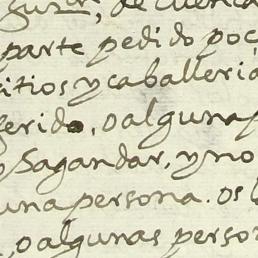 de cuenca
parte pedido poc
itios y caballeria
ferido, o alguna p
Sagandar, y no
una persona. os
, o algunas perso